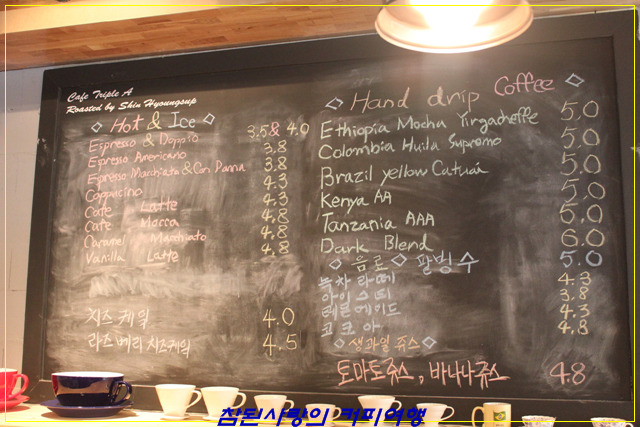 Cafe Triple A
Roasted by Shin Hyoungsup
Hot & Ice
Espresso & Doppio 3.5 & 4.0
Espresso Americano 3.8
Espresso Macchiato & Con Panna 3.8
Cappucino 4.3
Caffe Latte 4.3
Cafe Mocca 4.8
Caramel Macchiato 4.8
Vanilla Latte 4.8
치즈 케익 4.0
라즈베리 치즈케익 4.5
Hand drip Coffee
Ethiopia Mocha Yirgacheffe 5.0
Colombia Huila Supremo 5.0
Brazil yellow Catuai 5.0
Kenya AA 5.0
Tanzania AAA 5.0
Dark Blend 6.0
음료 팥빙수 5.0
녹차 라떼 4.3
아이스티 3.8
레몬에이드 4.3
코코아 4.8
생과일 쥬스
토마토쥬스, 바나나쥬스 4.8
참된사랑의 커피여행